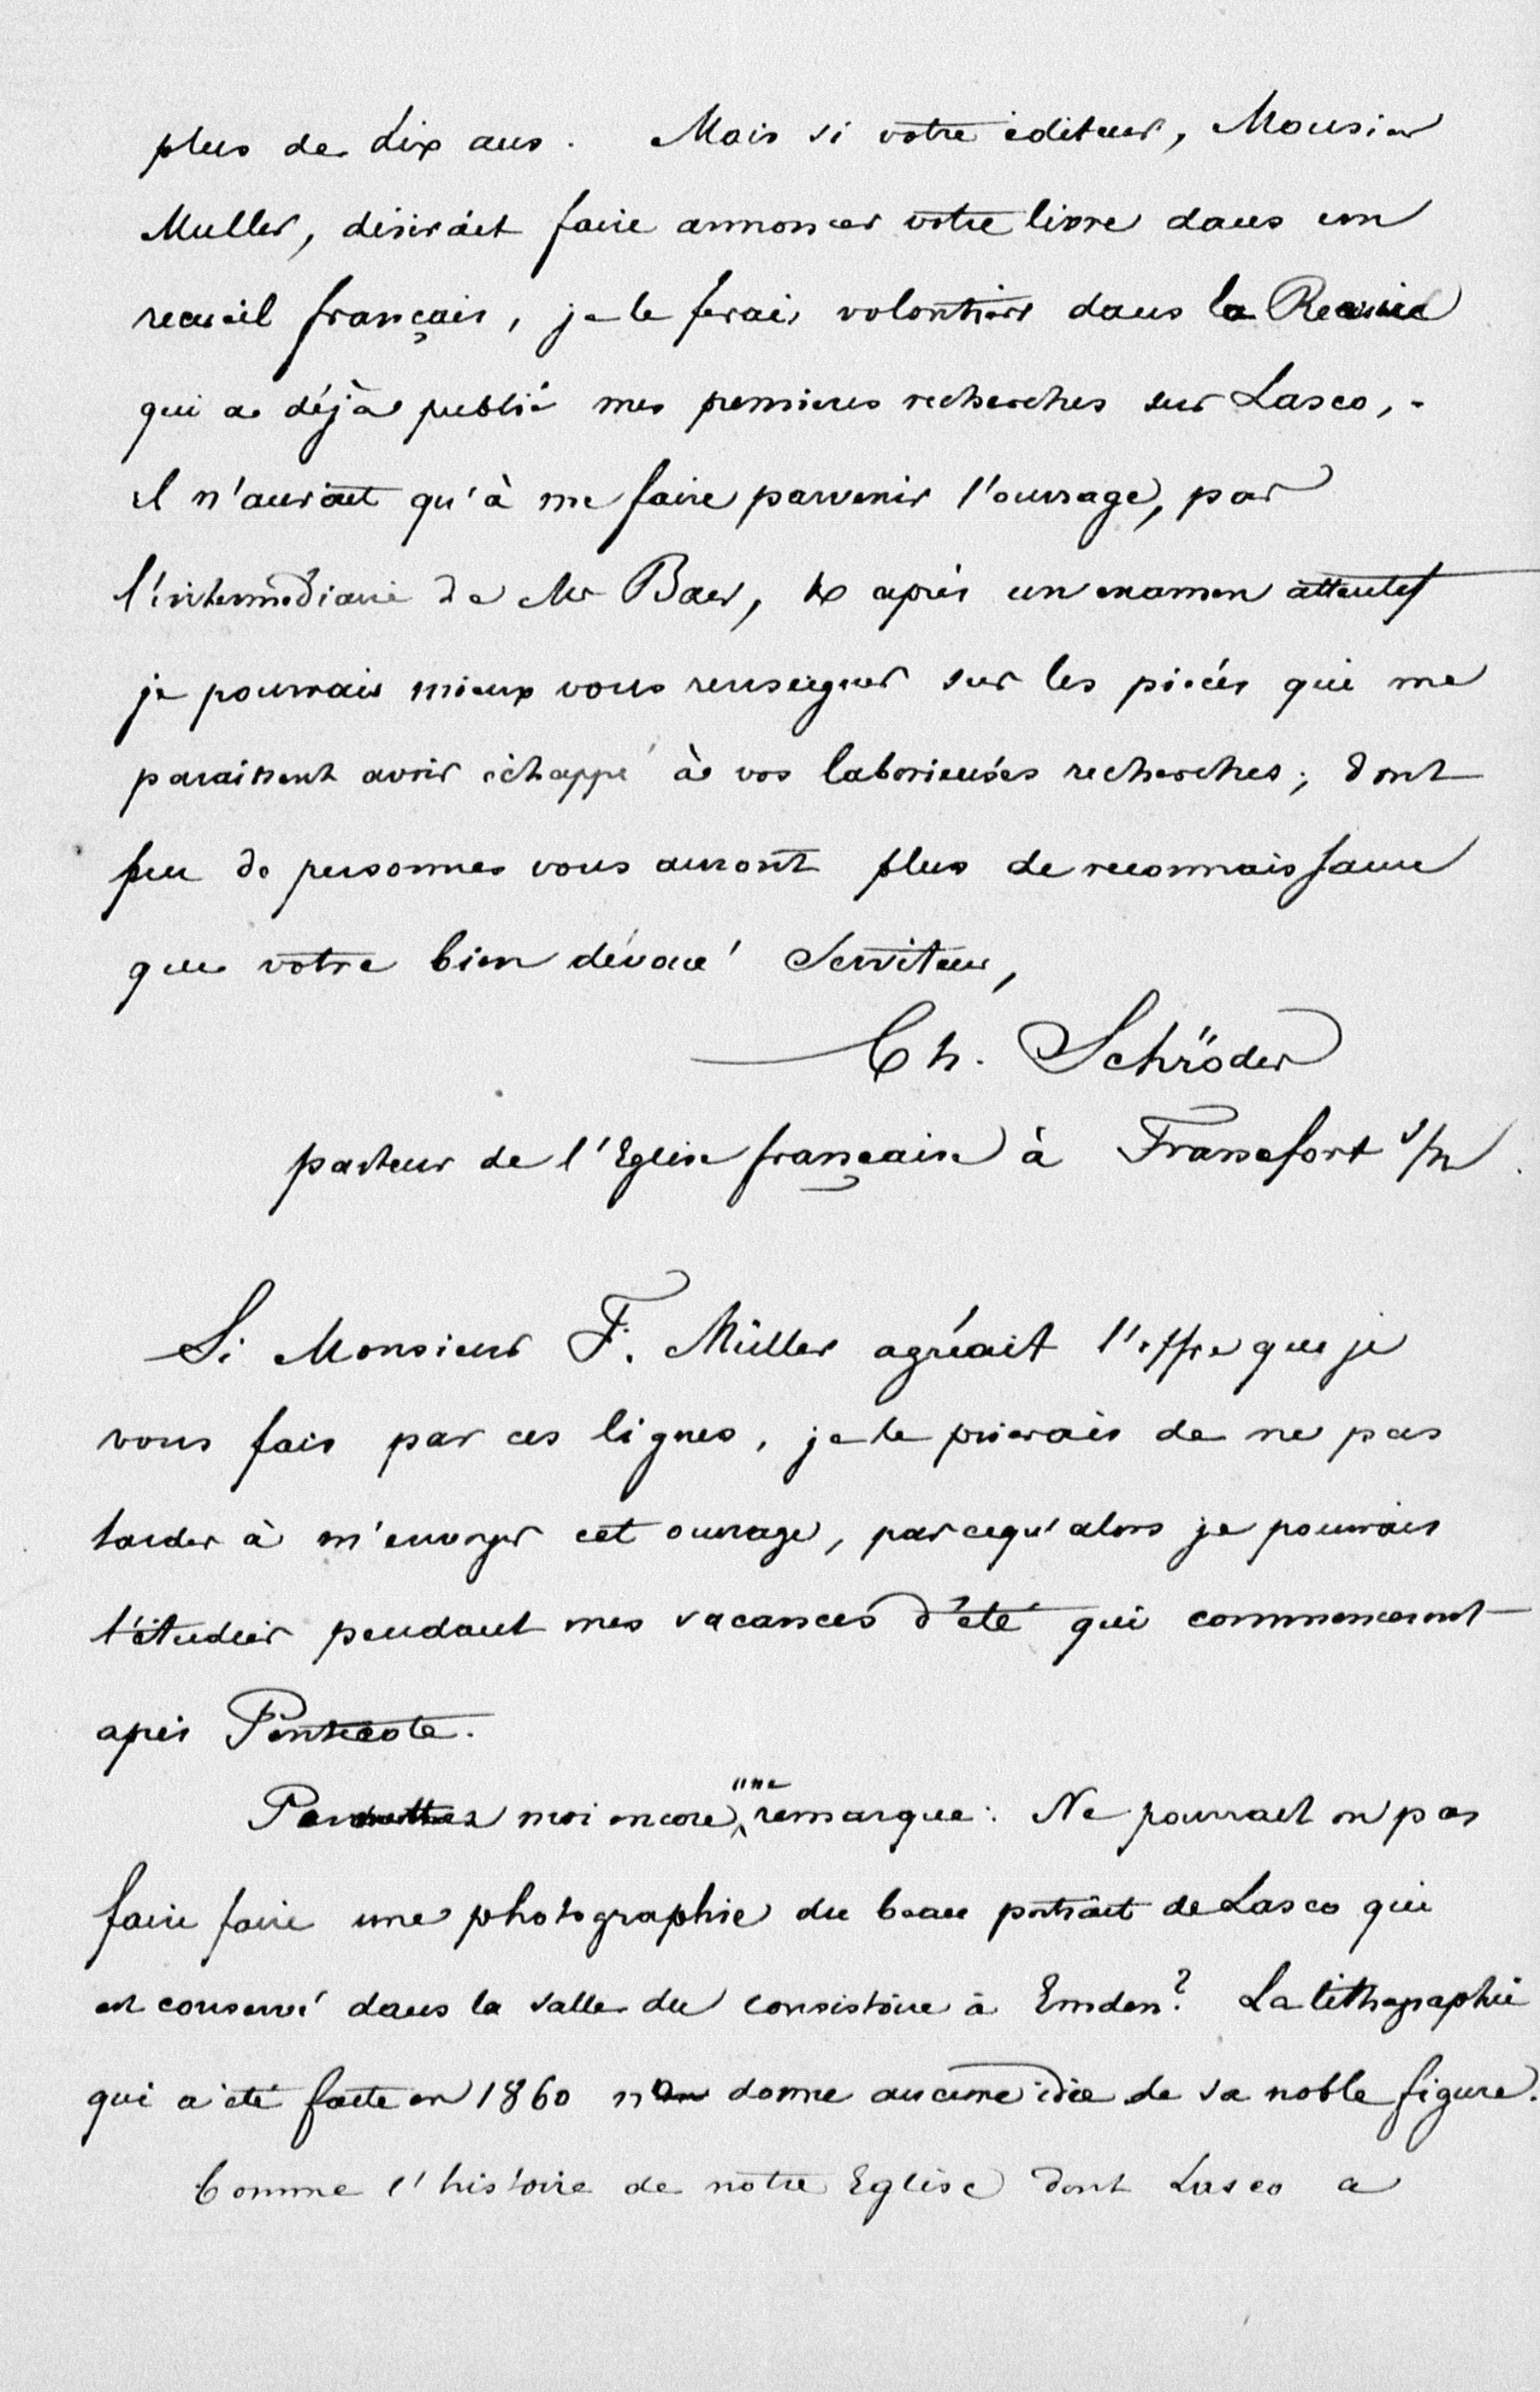 plus de dix ans. Mais si votre éditeur, Monsieur
Muller, désirait faire annoncer votre livre dans un
recueil français, je le ferais volontiers dans la Revue
qui a déjà publié mes premieres recherches sur Lasco, -
il n'aurait qu'à me faire parvenir l'ouvrage, par
l'intermédiaire de Mr Baer, & après un examen attentif
je pourrais mieux vous renseigner sur les pièces qui me
paraissent avoir échappé à vos laborieuses recherches; dont
peu de personnes vous auront plus de reconnaissance
que votre bien dévoué Serviteur,
Ch. Schröder
pasteur de l'Eglise française à Francfort s/m.
Si Monsieur F. Müller agréait l'offre que je
vous fais par ces lignes, je le prierais de ne pas
tarder à m'envoyer cet ouvrage, parcequ'alors je pourrais
l'étudier pendant mes vacances d'été qui commenceront
après Pentecote.
Permettez moi encore une remarque: Ne pourrait on pas
faire faire une photographie du beau portrait de Lasco qui
est conservé dans la salle du consistoire à Emden? La lithographie
qui a été faite en 1860 n'en donne aucune idée de sa noble figure.
Comme l'histoire de notre Eglise dont Lasco a